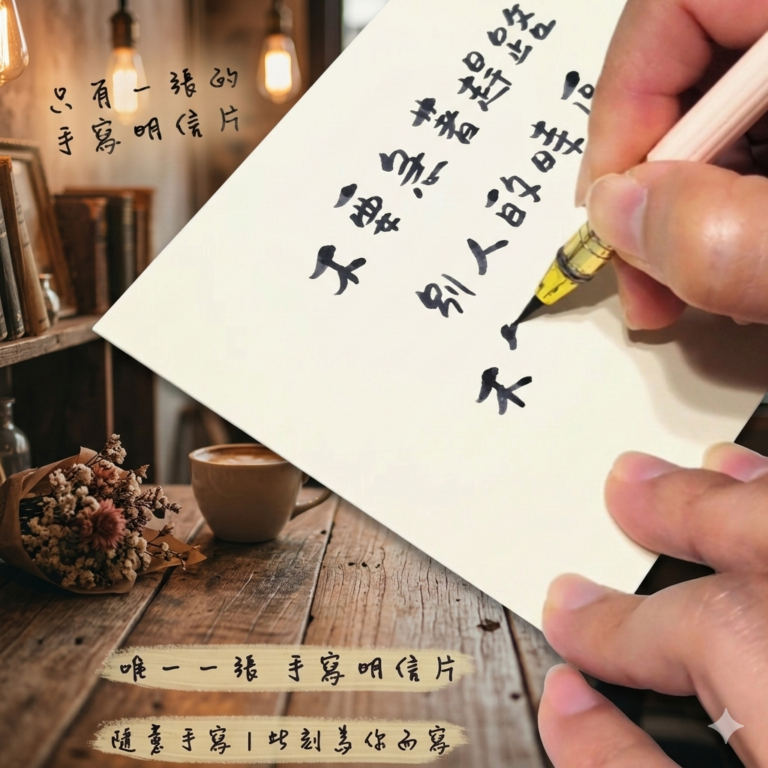 只有一張的
手寫明信片
不要急著趕路
別人的時
不
唯一一張 手寫明信片
隨意手寫|此刻為你而寫